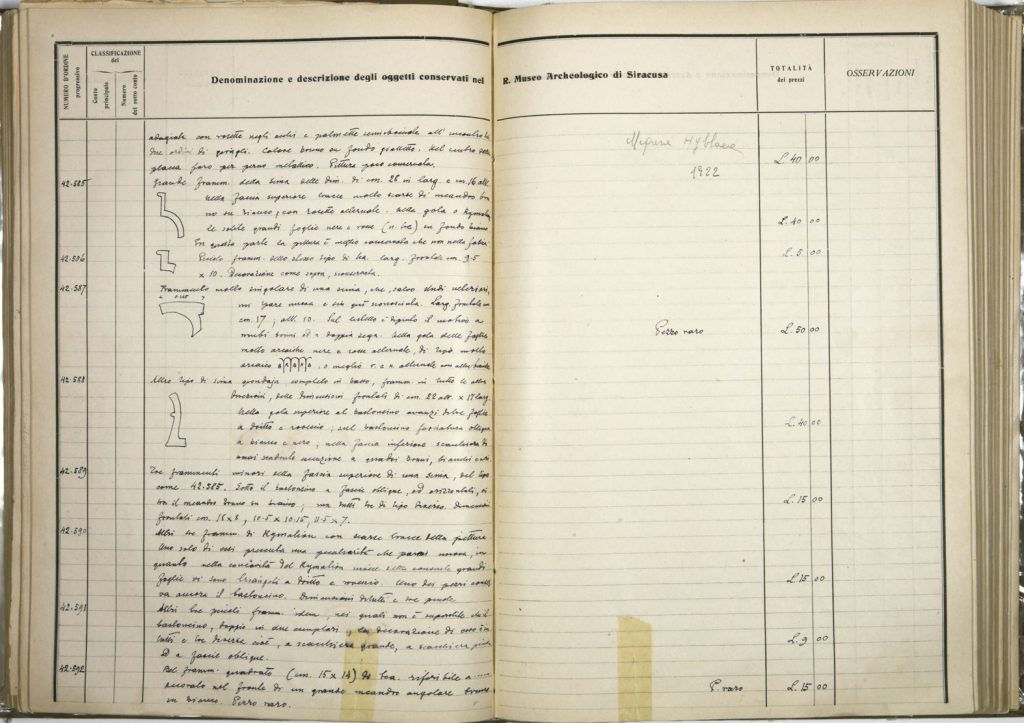 NUMERO D'ORDINE progressivo
CLASSIFICAZIONE del
Conto principale
Numero del sotto conto
Denominazione e descrizione degli oggetti conservati nel R. Museo Archeologico di Siracusa
TOTALITÀ dei prezzi
OSSERVAZIONI
con rosette negli e palmette all'incontro
due ordini di . Colore bruno su fondo gialletto. Nel centro della
placca foro per perno metallico. Pittura poco conservata.
Megara Hyblaea
1922
L. 40 00
42.585
Grande framm. della sima delle dim. di cm. 28 in larg. e cm. 16 alt.
nella fascia superiore tracce molto scarse di meandro
no su bianco, con rosette alternate. Nella gola o Kymation
le solite grandi foglie nere e rosse (n. tre) su fondo bianco
In questa parte la pittura è meglio conservata che non nella fascia
L. 40 00
42.586
Piccolo framm. dello stesso tipo di tca. larg. frontale cm. 9.5
x 10. Decorazione come sopra,
L. 5 00
42.587
Frammento molto singolare di una sima, che, salvo studi ulteriori,
mi pare nuova e sin qui sconosciuta. Larg. frontale
cm. 17, alt. 10. Sul listello è dipinto il motivo a
bruni a doppia sega. Nella gola delle foglie
molto arcaiche nere e rosse alternate, di tipo molto
arcaico o meglio r. e n. alternate con altre bianche
Pezzo raro
L. 50 00
42.588
Altro tipo di sima grondaja, completo in basso, framm. in tutte le altre
direzioni, delle dimensioni frontali di cm. 22 alt. x 17 larg.
Nella gola superiore al bastoncino avanzi di tre foglie
a dritto e rovescio; sul bastoncino fasciatura obliqua
a bianco e nero; nella fascia inferiore scacchiera di
a quadri bruni, bianchi
L. 40 00
42.589
Tre frammenti minori della fascia superiore di una sima, del tipo
come 42.585. Sotto il bastoncino a fascie oblique, ed orizzontali,
il meandro bruno su bianco; ma tutti tre di tipo diverso. Dimensioni
frontali cm. 18 x 8, 10.5 x 10.15, 11.5 x 7.
L. 15 00
42.590
Altri tre framm. di Kymation con scarse tracce della pittura
Uno solo di essi presenta una peculiarità che parmi nuova, in
quanto nella concavità del Kymation delle grandi
foglie vi sono triangoli a dritto e rovescio. Uno dei pezzi
va ancora il bastoncino. Dimensioni di tutti e tre piccole.
L. 15 00
42.591
Altri tre piccoli framm. idem, nei quali non è superstite che il
bastoncino, doppio in due esemplari; la decorazione di esso è in
tutti e tre diversa cioè, a scacchiera grande, a scacchiera
ed a fascie oblique.
L. 9 00
42.592
Bel framm. quadrato (cm. 15 x 14) di tca. riferibile a
nel fronte di un grande meandro angolare bruno
su bianco. Pezzo raro.
P. raro
L. 15 00